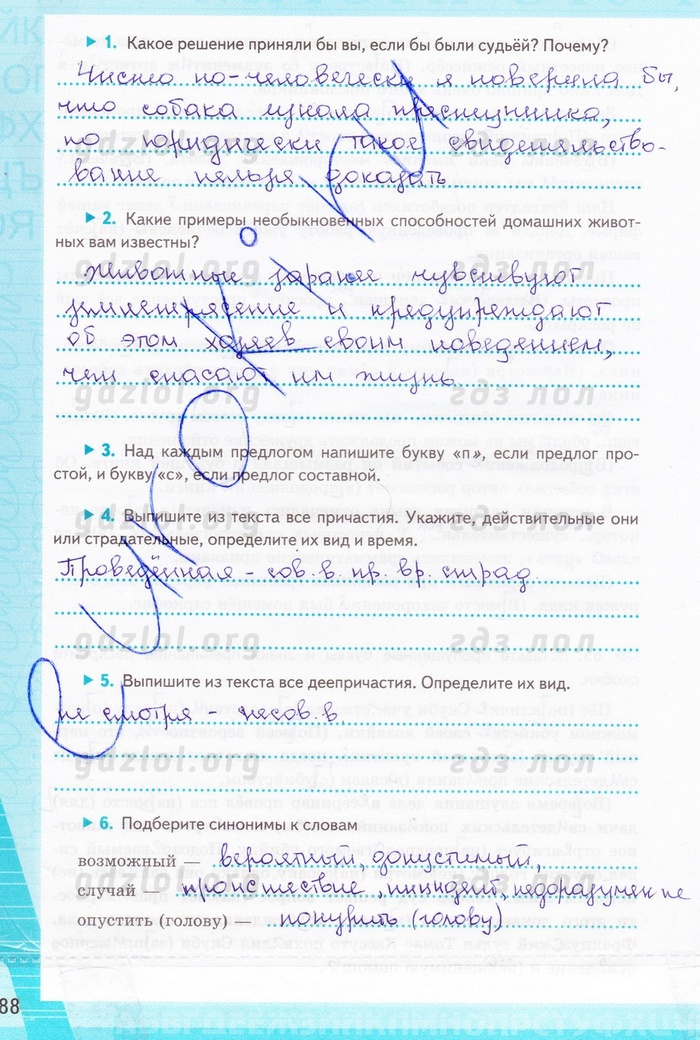 ▶ 1. Какое решение приняли бы вы, если бы были судьёй? Почему?
Чисто по-человечески я поверила бы,
что собака узнала преступника,
но юридически такое свидетельство-
вание нельзя доказать
gdzlol.org гдз лол
▶ 2. Какие примеры необыкновенных способностей домашних живот-
ных вам известны?
gdzlol.org гдз лол
Животные заранее чувствуют
землетрясение и предупреждают
об этом хозяев своим поведением,
чем спасают им жизнь
gdzlol.org гдз лол
▶ 3. Над каждым предлогом напишите букву «п», если предлог про-
стой, и букву «с», если предлог составной.
▶ 4. Выпишите из текста все причастия. Укажите, действительные они
или страдательные, определите их вид и время.
gdzlol.org гдз лол
Проведённая – сов. в. пр. вр. страд.
gdzlol.org гдз лол
▶ 5. Выпишите из текста все деепричастия. Определите их вид.
не смотря – несов. в
gdzlol.org гдз лол
▶ 6. Подберите синонимы к словам
возможный — вероятный, допустимый,
gdzlol.org гдз лол
случай — происшествие, инцидент, недоразумение
опустить (голову) — понурить (голову)
88